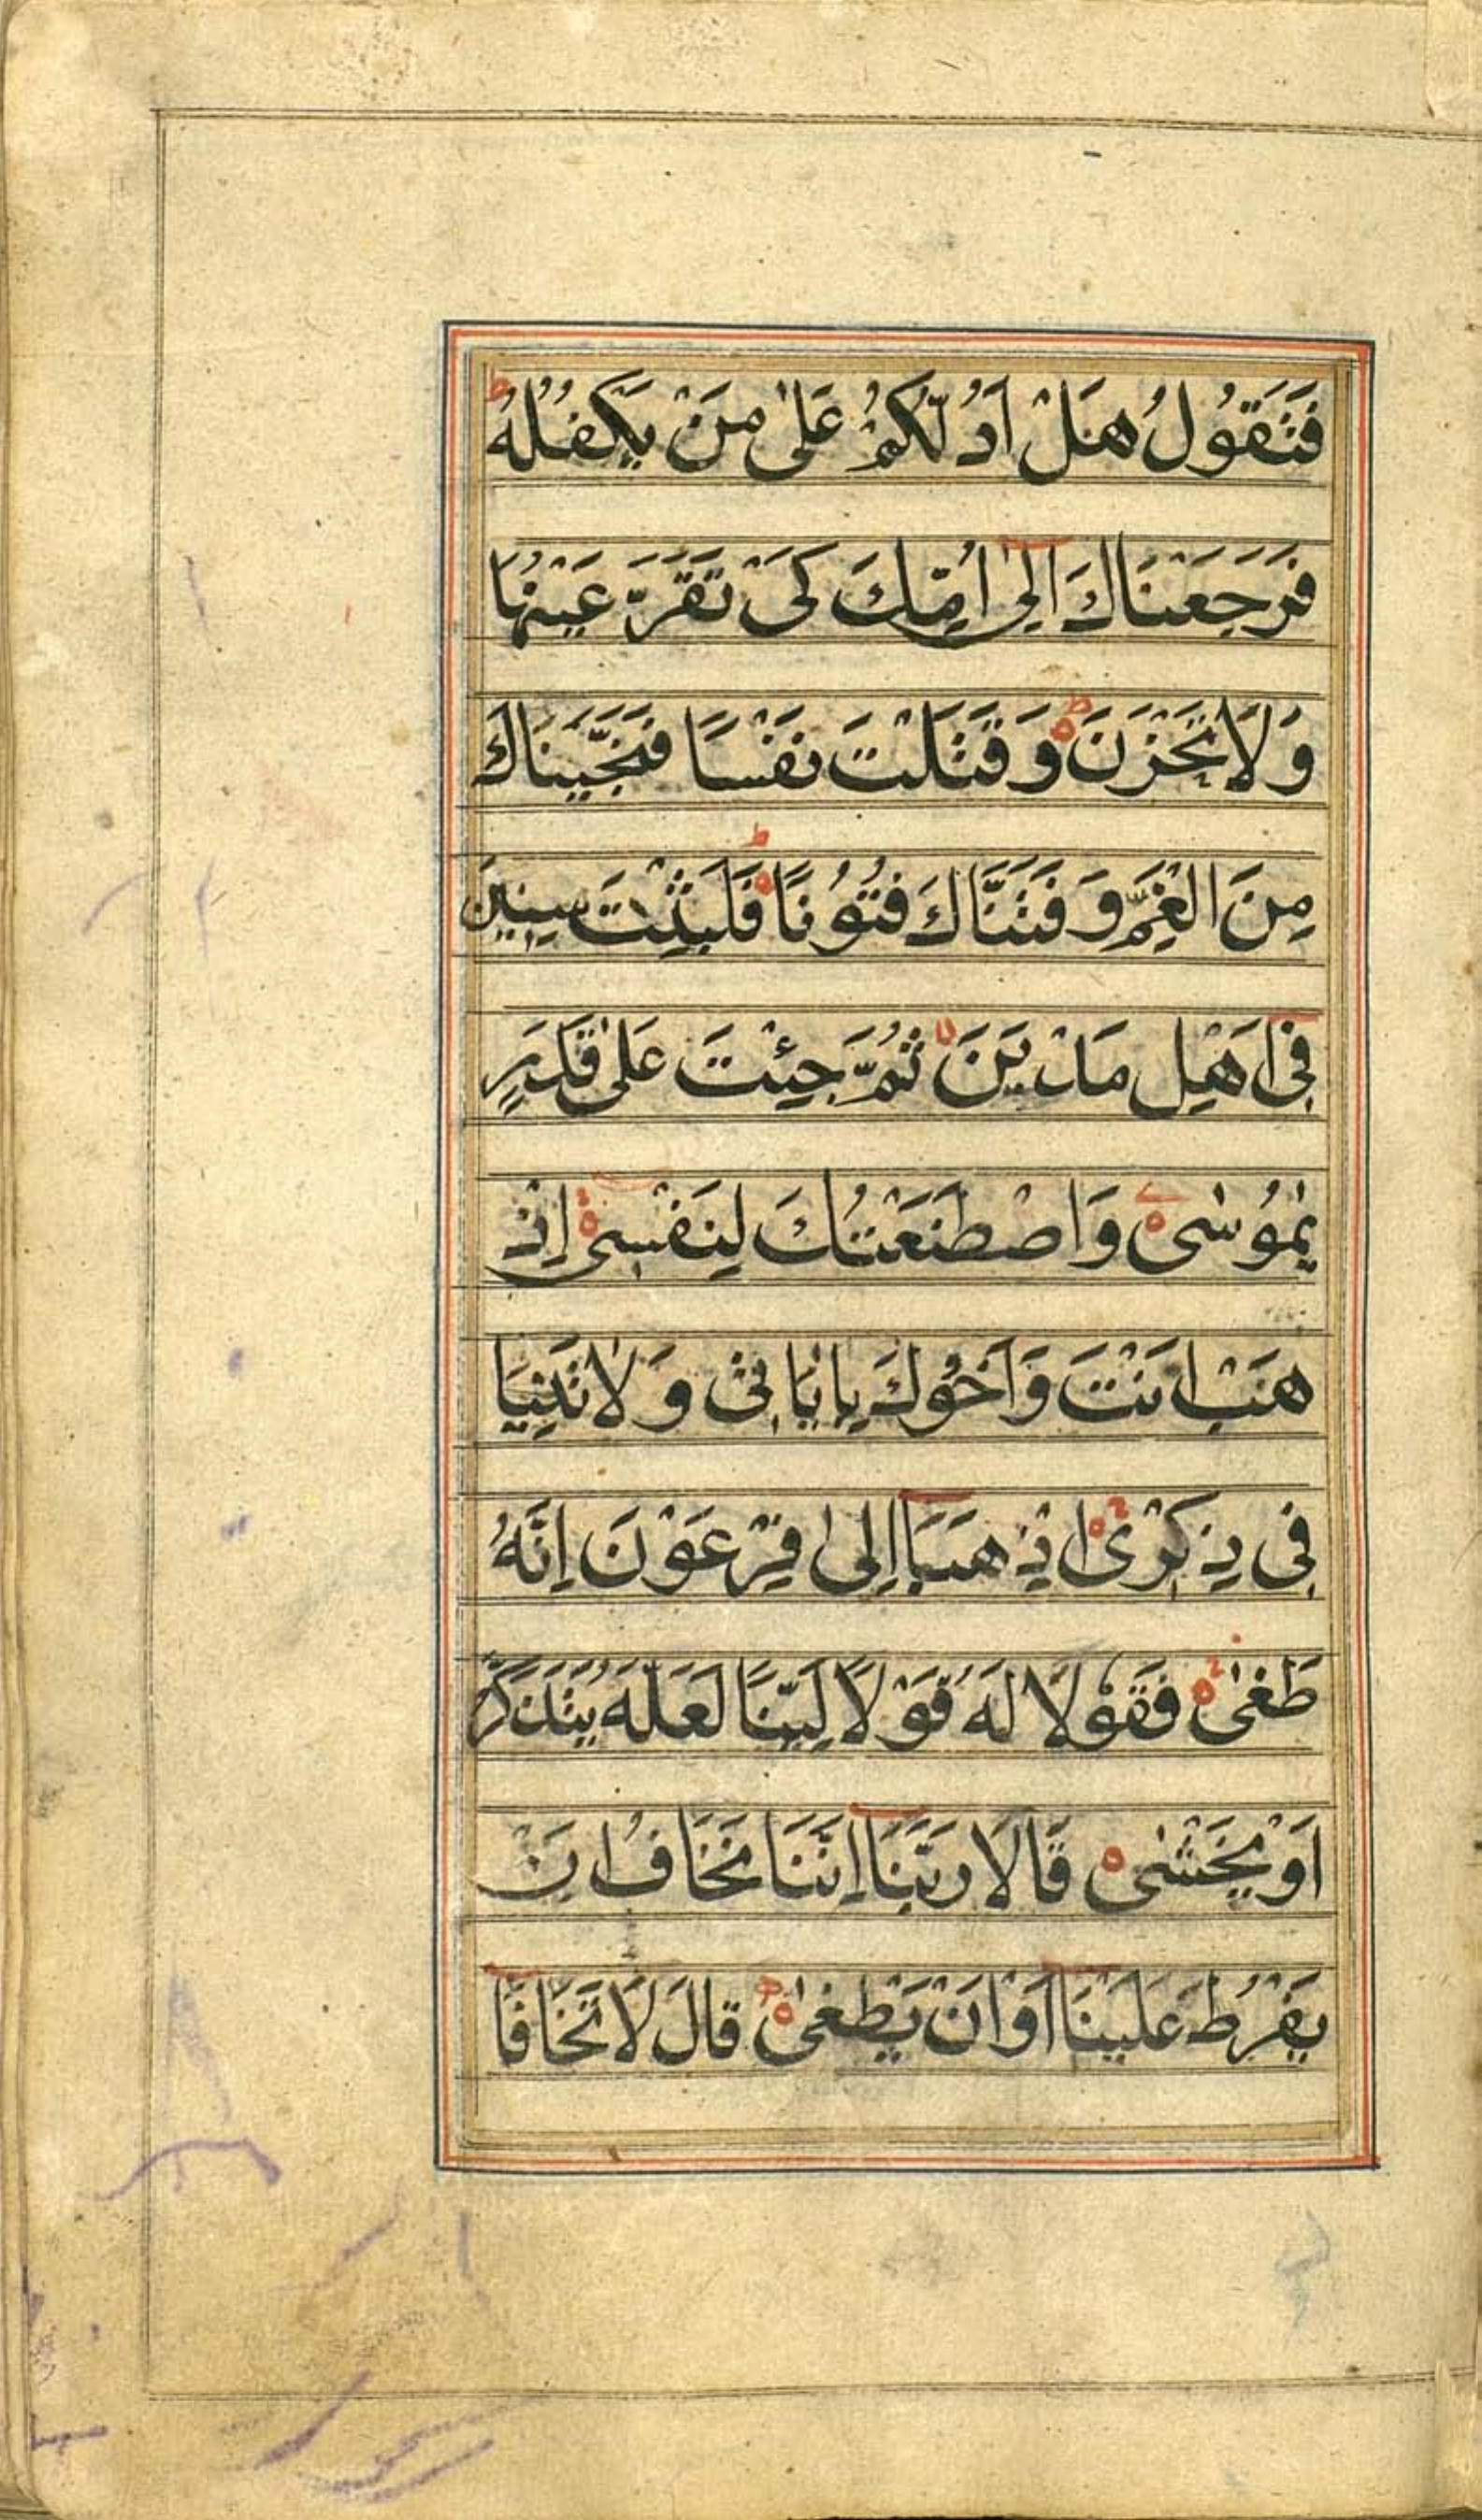 فَتَقُوْلُ هَلْ اَدُلُّكُمْ عَلٰى مَنْ يَكْفُلُهُ ط
فَرَجَعْنَاكَ اِلٰى اُمِّكَ كَىْ تَقَرَّ عَيْنُهَا
وَلَا تَحْزَنَ ه ط وَقَتَلْتَ نَفْسًا فَنَجَّيْنَاكَ
مِنَ الْغَمِّ وَفَتَنَّاكَ فُتُوْنًا ه ط فَلَبِثْتَ سِنِيْنَ
فِىْ اَهْلِ مَدْيَنَ لا ثُمَّ جِئْتَ عَلٰى قَدَرٍ
يٰمُوْسٰى ه وَاصْطَنَعْتُكَ لِنَفْسِىْ ه اِذْ
هَبْ اَنْتَ وَاَخُوْكَ بِاٰيَاتِىْ وَلَا تَنِيَا
فِىْ ذِكْرِىْ ه اِذْهَبَا اِلٰى فِرْعَوْنَ اِنَّهُ
طَغٰى ه فَقُوْلَا لَهُ قَوْلًا لَيِّنًا لَعَلَّهُ يَتَذَكَّرُ
اَوْ يَخْشٰى ه قَالَا رَبَّنَا اِنَّنَا نَخَافُ اَنْ
يَفْرُطَ عَلَيْنَا اَوْ اَنْ يَطْغٰى ه ط قَالَ لَا تَخَافَا